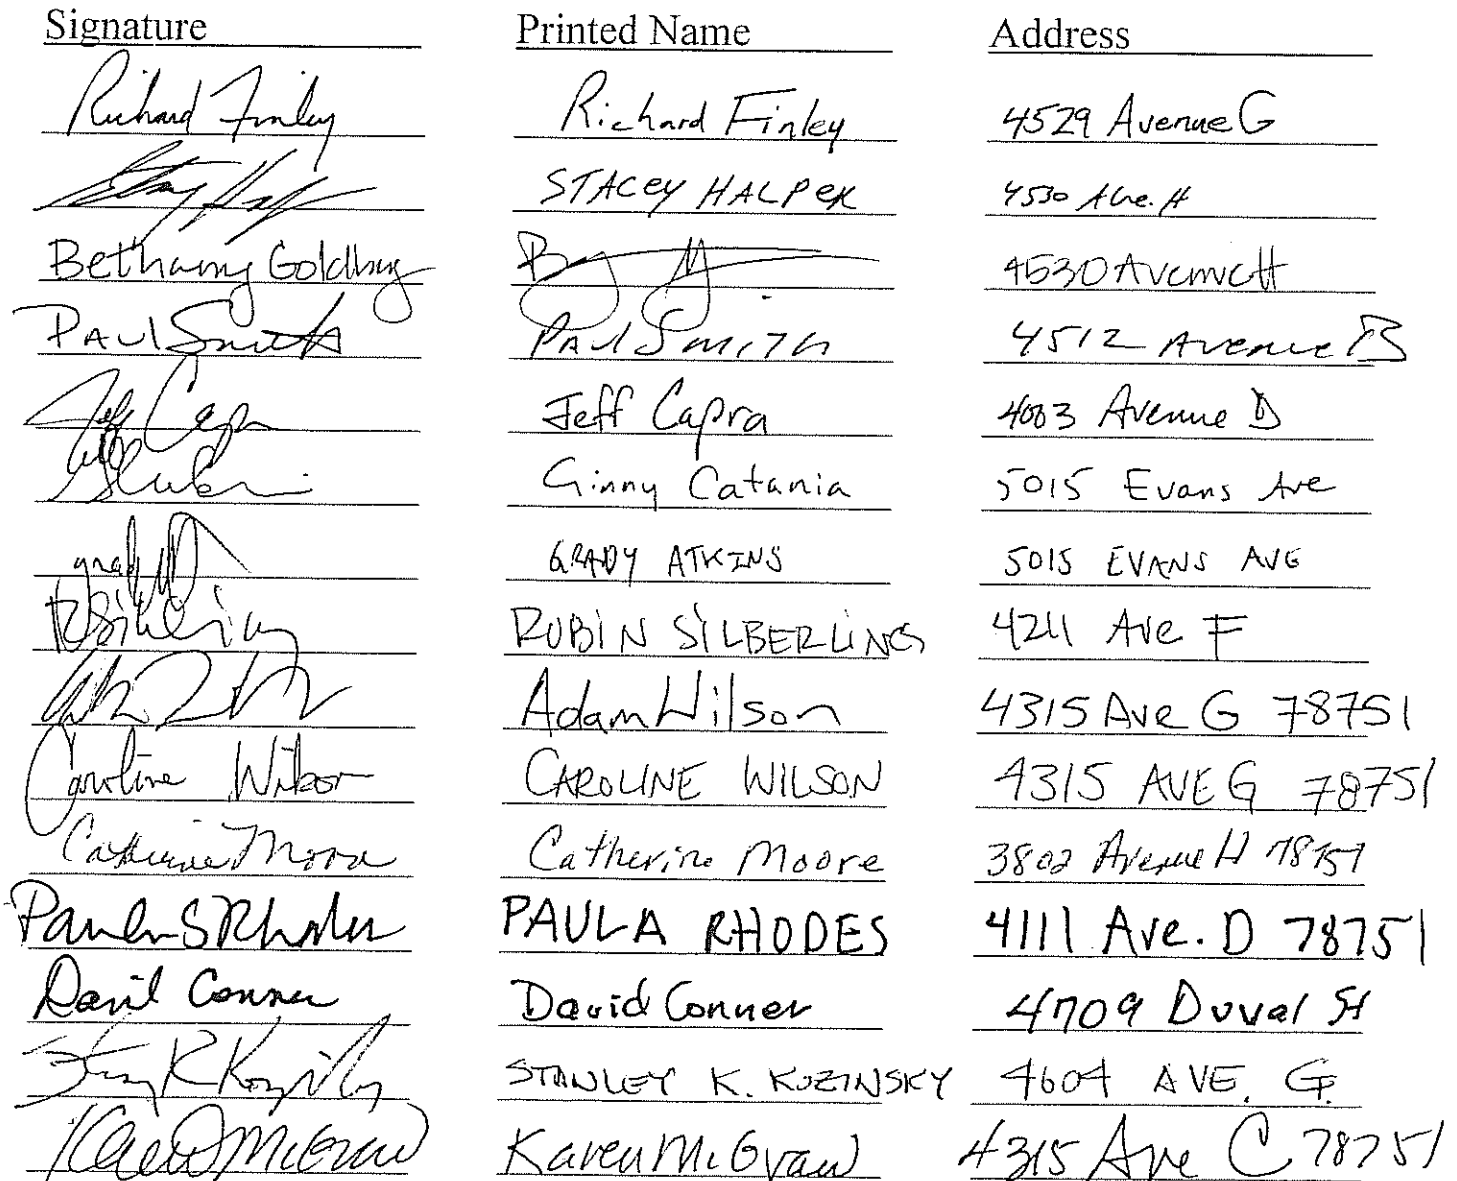 Signature Printed Name Address
Richard Finley Richard Finley 4529 Avenue G
STACEY HALPER 4530 Ave. H
Bethany Goldberg 4530 Avenue H
PAUL Smith PAUL SMITH 4512 Avenue B
Jeff Capra 4003 Avenue D
Ginny Catania 5015 Evans Ave
GRADY ATKINS 5015 EVANS AVE
RSilberling RUBIN SILBERLING 4211 Ave F
Adam Wilson 4315 Ave G 78751
Caroline Wilson CAROLINE WILSON 4315 AVE G 78751
Catherine Moore Catherine Moore 3802 Avenue H 78751
Paula S Rhodes PAULA RHODES 4111 Ave. D 78751
David Conner David Conner 4709 Duval St
STANLEY K. KOZINSKY 4604 AVE. G.
Karen McGraw Karen McGraw 4315 Ave C 78751